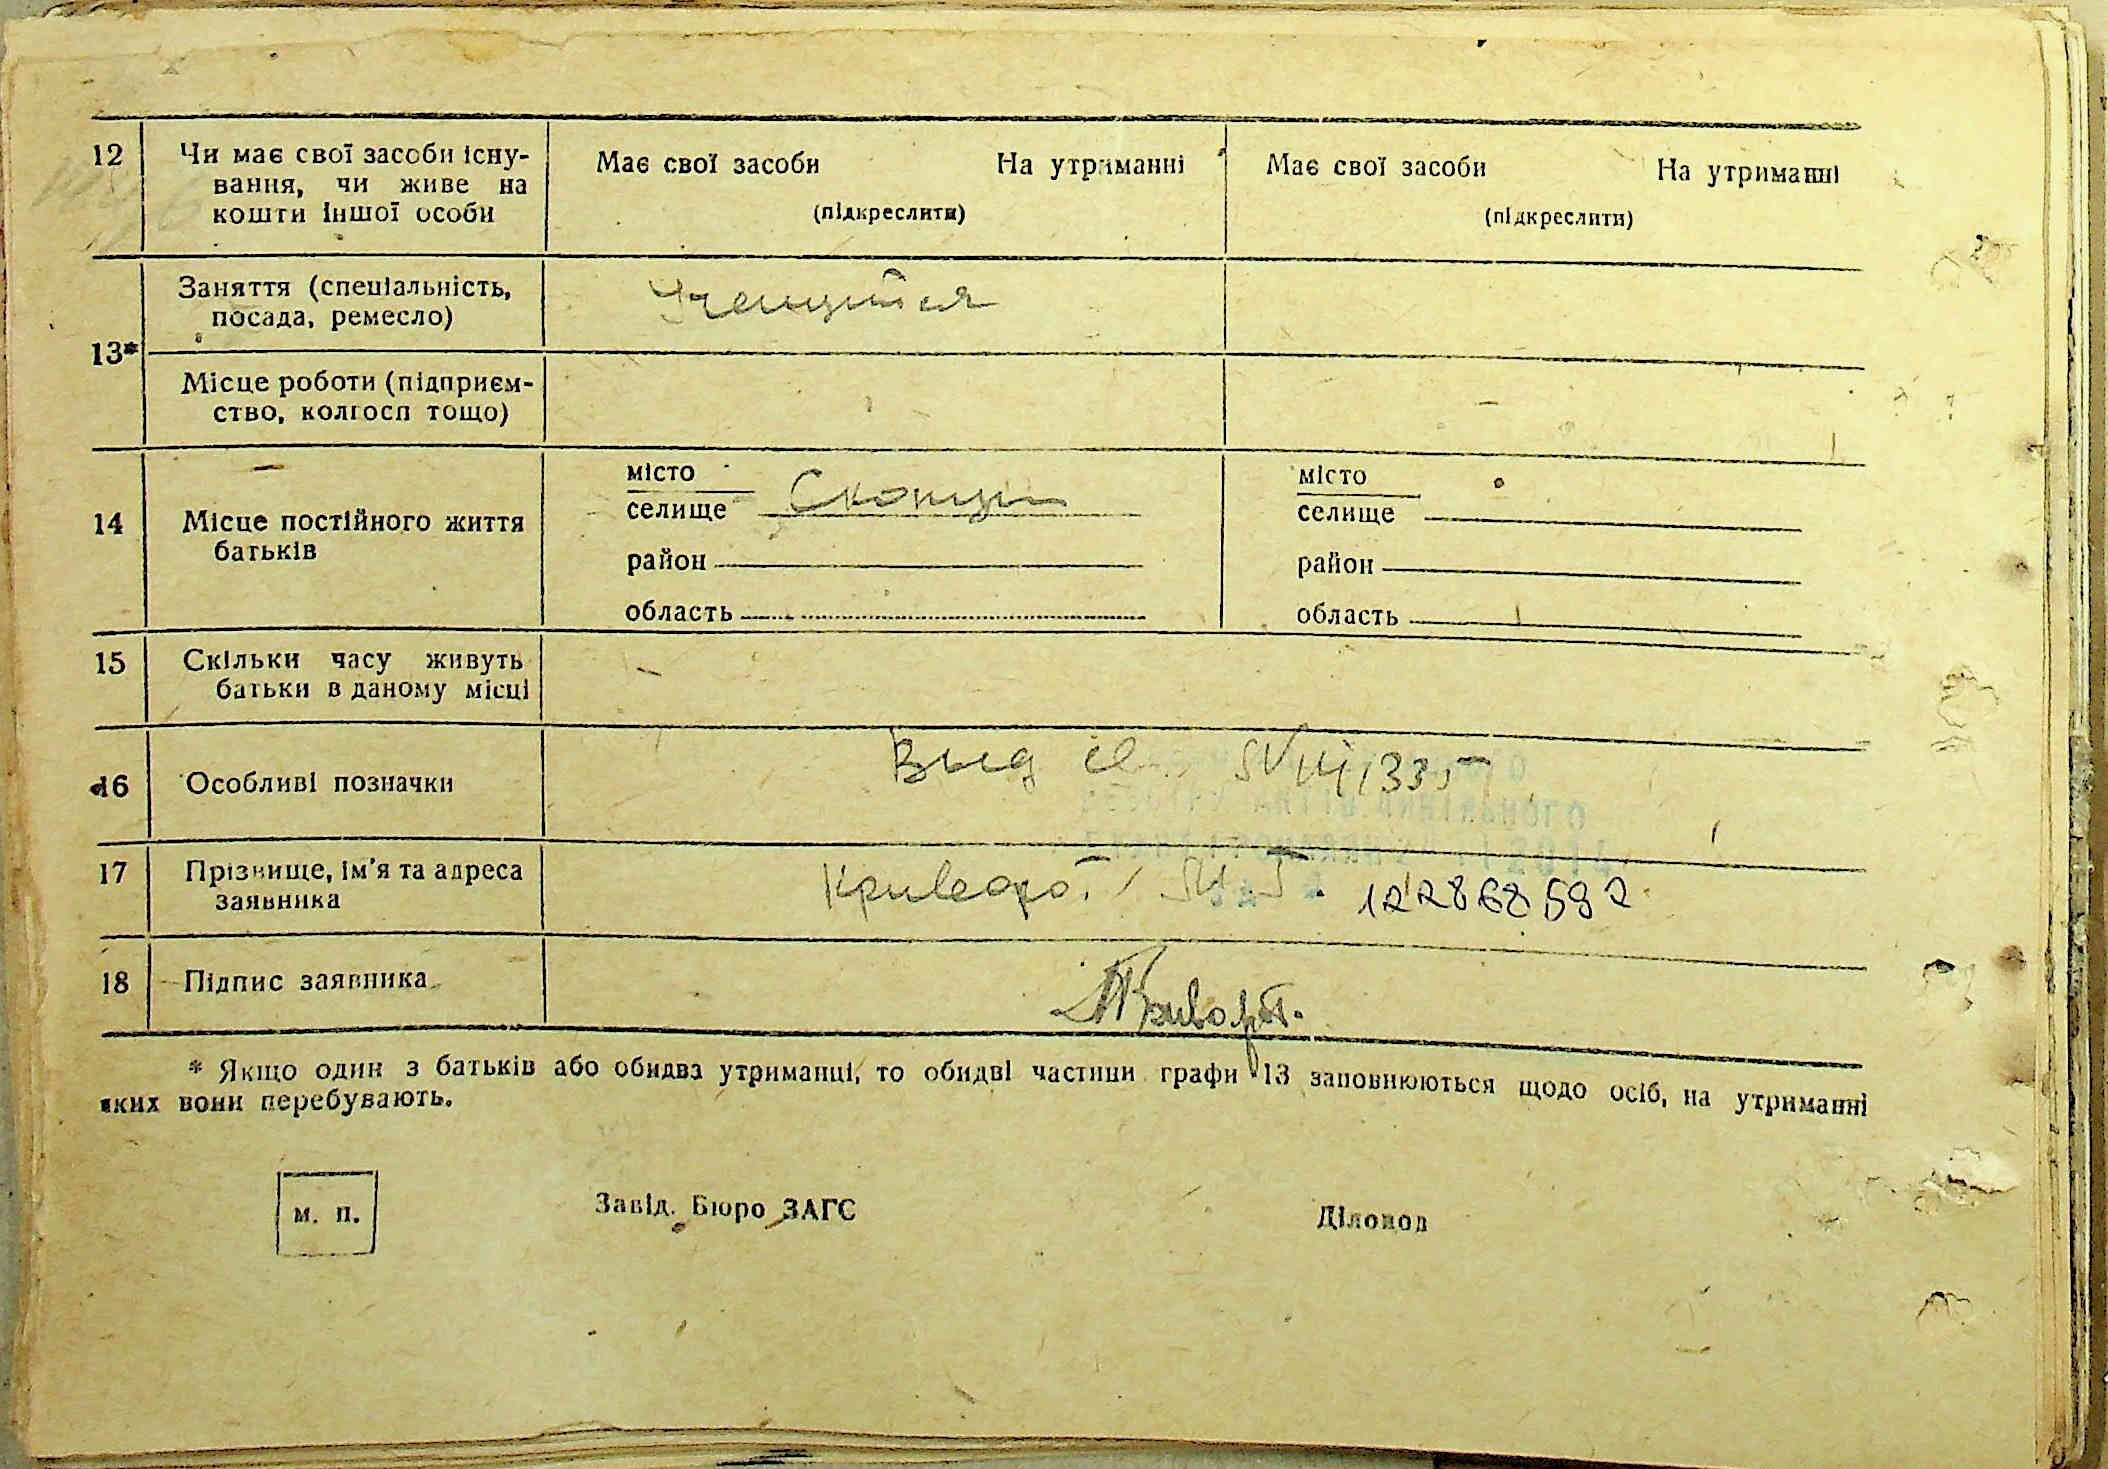 12
Чи має свої засоби існу-
вання, чи живе на
кошти іншої особи
Має свої засоби На утриманні
(підкреслити)
Має свої засоби На утриманні
(підкреслити)
13*
Заняття (спеціальність,
посада, ремесло)
Місце роботи (підприєм-
ство, колгосп тощо)
14
Місце постійного життя
батьків
місто
селище
район
область
місто
селище
район
область
15
Скільки часу живуть
батьки в даному місці
16
Особливі позначки
Выд
17
Прізвище, ім'я та адреса
заявника
18
Підпис заявника
* Якщо один з батьків або обидва утриманці, то обидві частини графи 13 заповнюються щодо осіб, на утриманні
яких вони перебувають.
м. п.
Завід. Бюро ЗАГС
Діловод